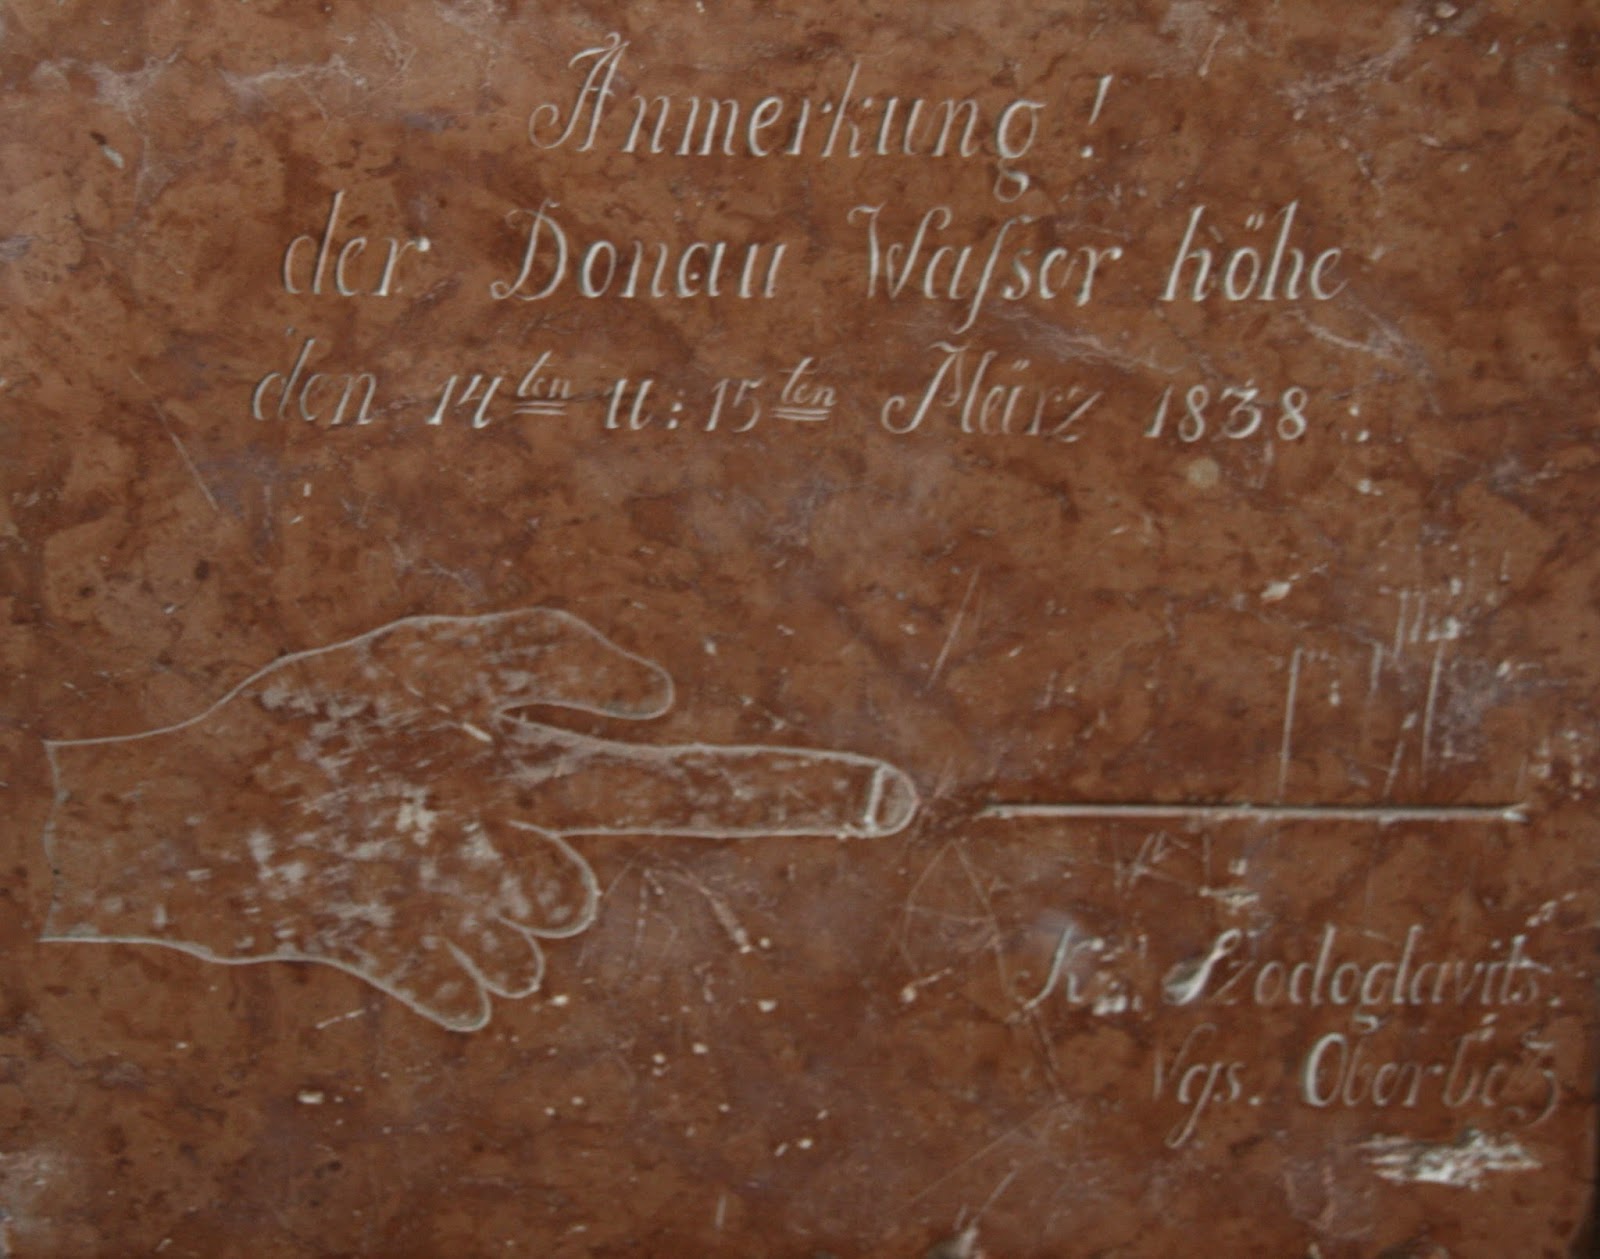 Anmerkung !
der Donau Waſser höhe
den 14ten u: 15ten März 1838 .
Szodoglavits.
Vgs.